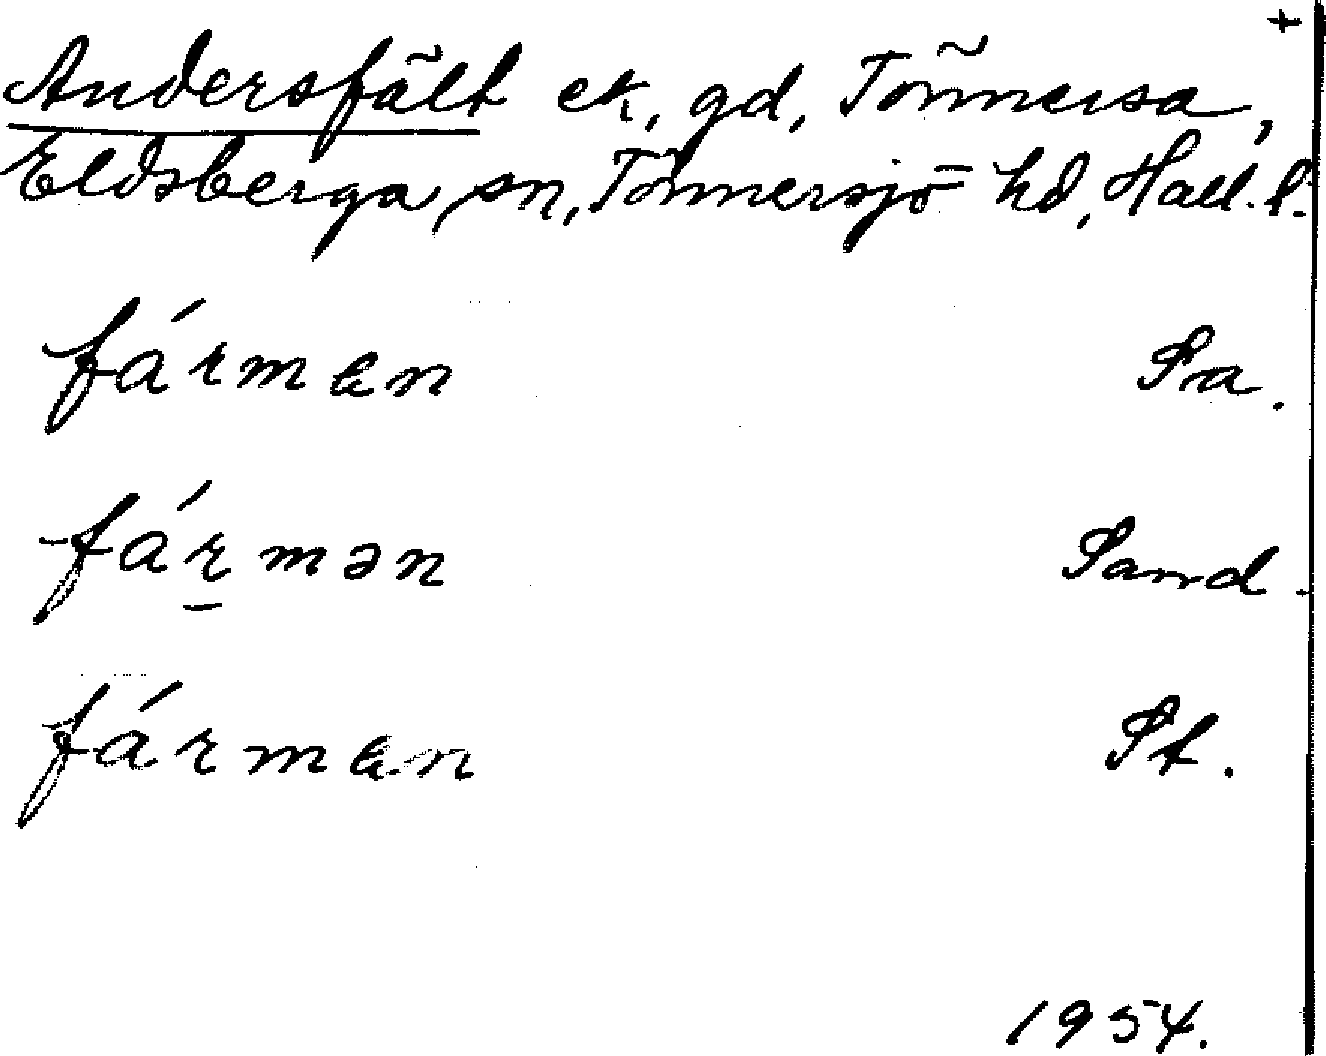 +
Andersfält ek, gd, Tönnersa,
Eldsberga sn, Tönnersjö hd, Hall. l.
fárman Sa.
fármən Sand.
fárman St.
1954.